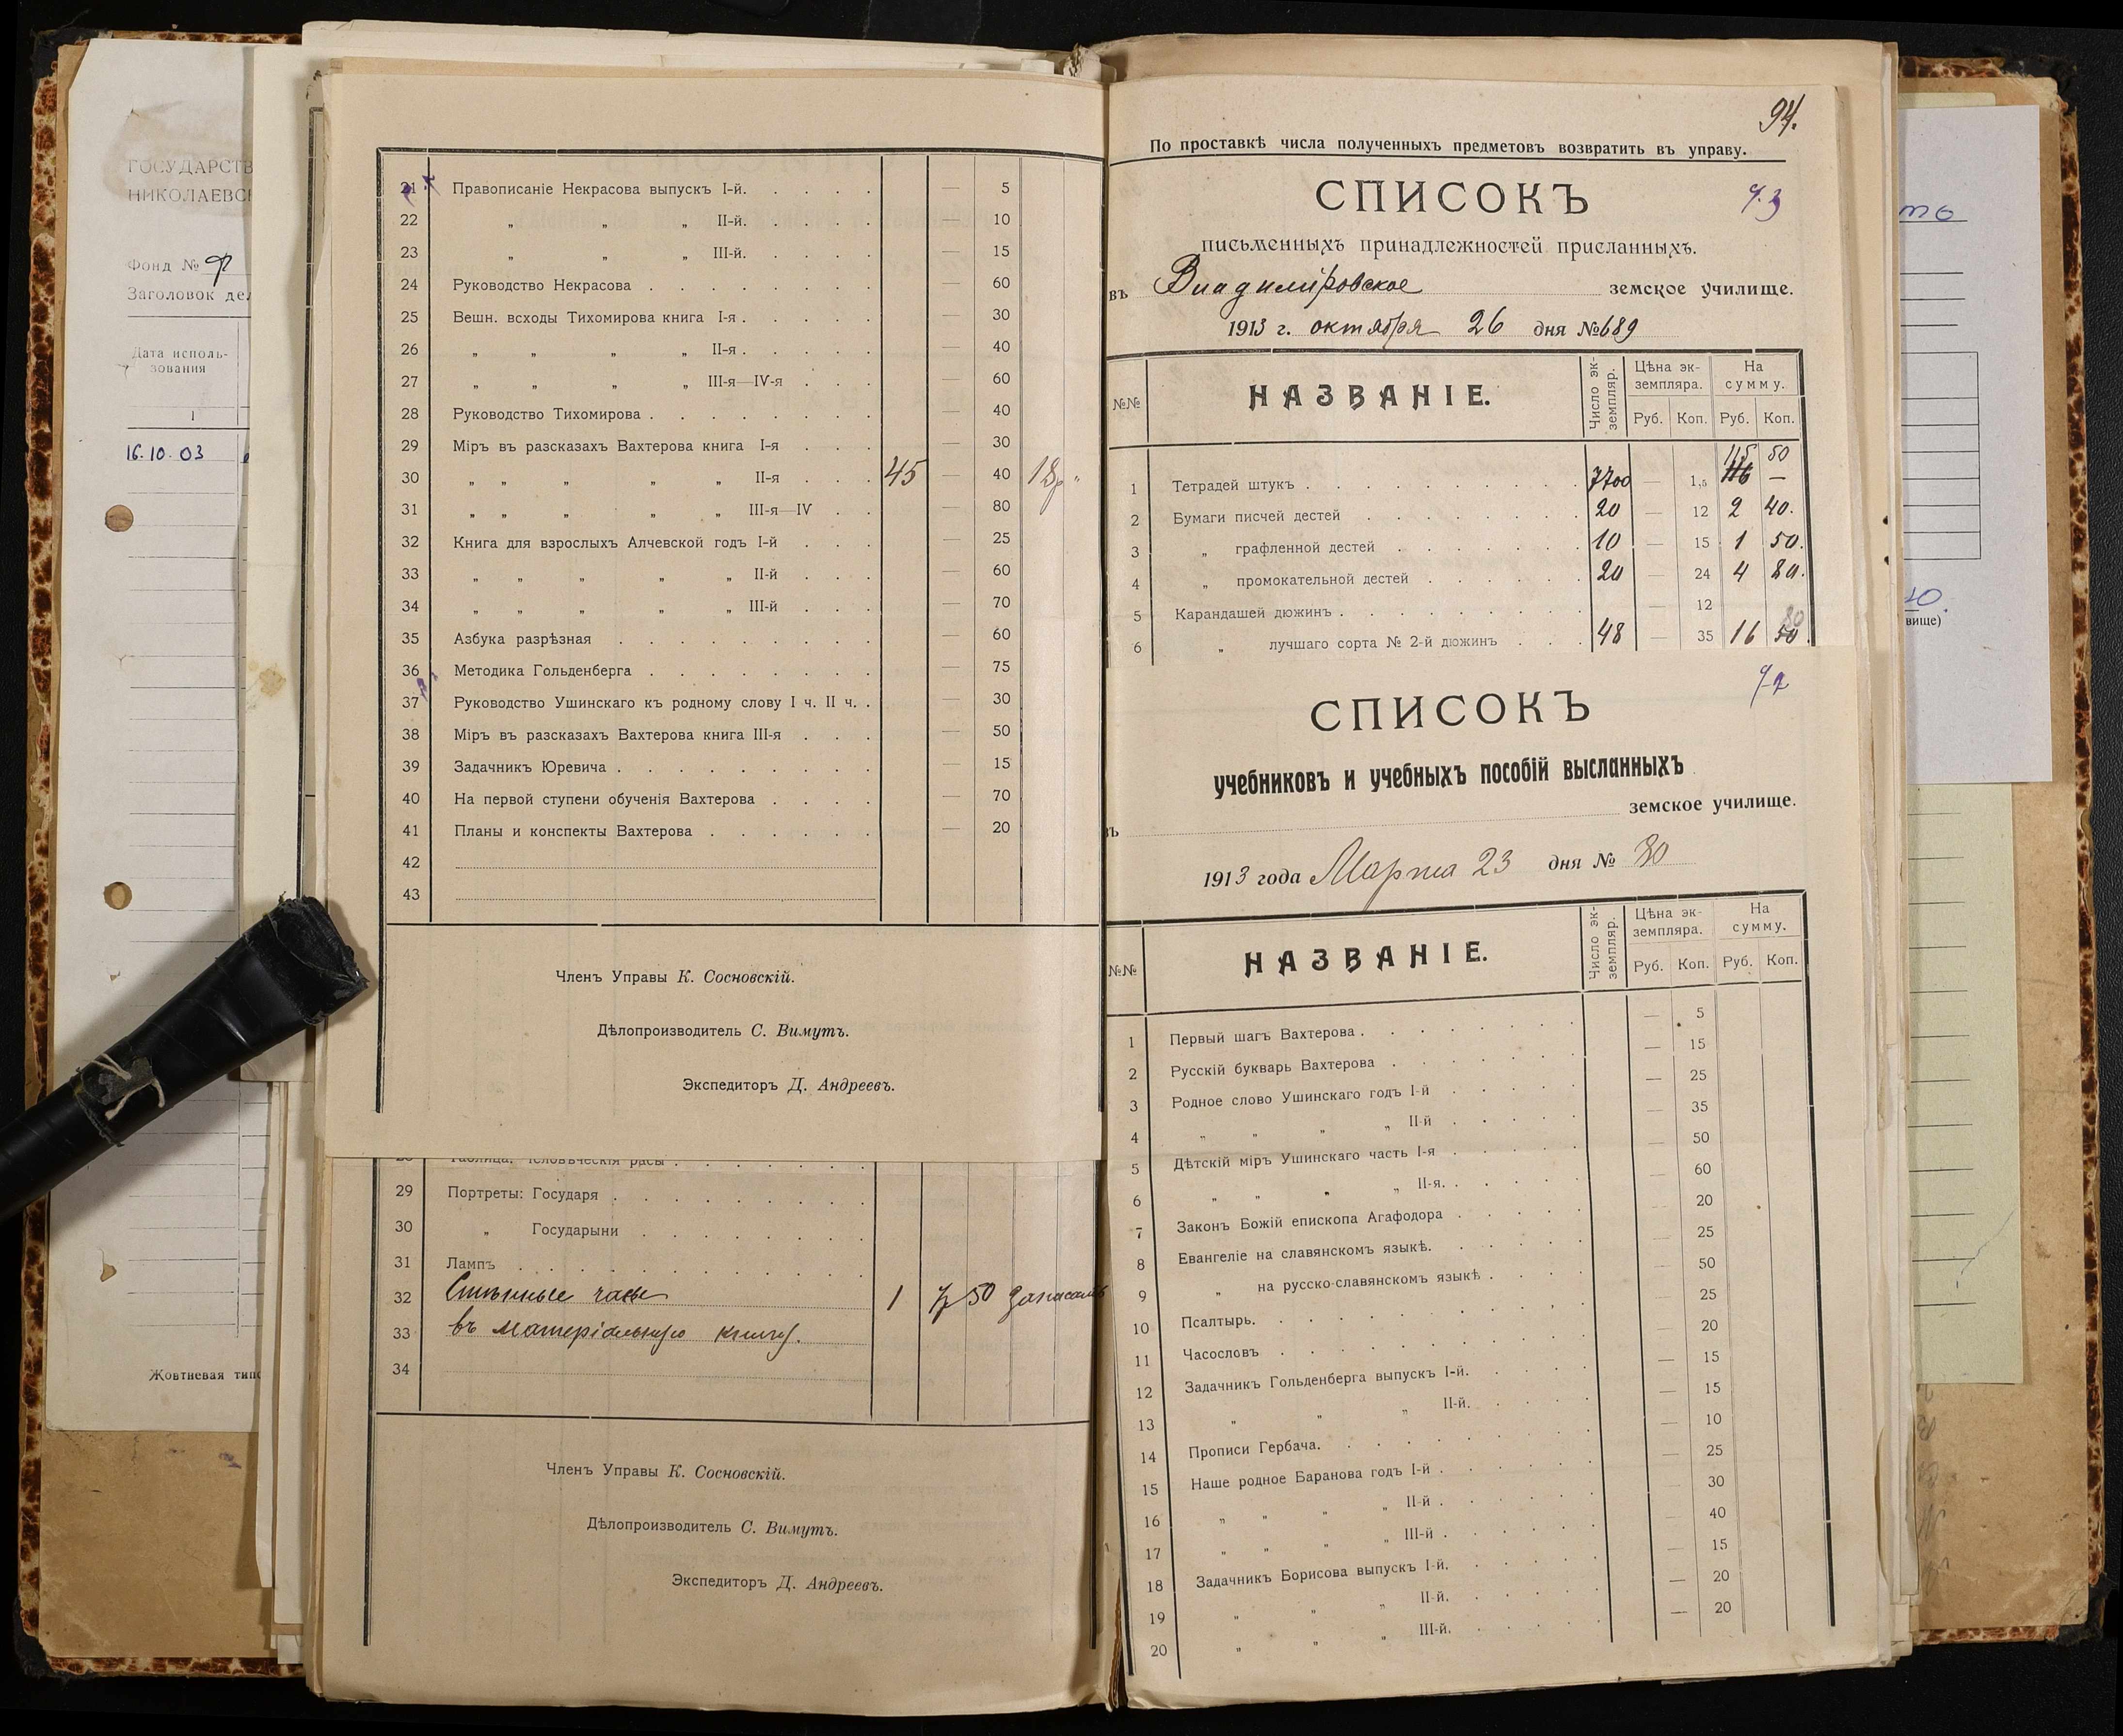 ГОСУДАРСТВ
НИКОЛАЕВС
Фонд №
Заголовок де
Дата исполь-
зования
1
16.10.03
Жовтневая тип
21 Правописаніе Некрасова выпускъ I-й. — 5
22 „ „ „ II-й. — 10
23 „ „ „ III-й. — 15
24 Руководство Некрасова — 60
25 Вешн. всходы Тихомирова книга I-я — 30
26 „ „ „ „ II-я — 40
27 „ „ „ „ III-я—IV-я — 60
28 Руководство Тихомирова — 40
29 Міръ въ разсказахъ Вахтерова книга I-я — 30
30 „ „ „ „ „ II-я 45 — 40 18р „
31 „ „ „ „ „ III-я—IV — 80
32 Книга для взрослыхъ Алчевской годъ I-й — 25
33 „ „ „ „ „ II-й — 60
34 „ „ „ „ „ III-й — 70
35 Азбука разрѣзная — 60
36 Методика Гольденберга — 75
37 Руководство Ушинскаго къ родному слову I ч. II ч. — 30
38 Міръ въ разсказахъ Вахтерова книга III-я — 50
39 Задачникъ Юревича — 15
40 На первой ступени обученія Вахтерова — 70
41 Планы и конспекты Вахтерова — 20
42
43
Членъ Управы К. Сосновскій.
Дѣлопроизводитель С. Вимутъ.
Экспедиторъ Д. Андреевъ.
29 Портреты: Государя
30 „ Государыни
31 Лампъ
32 Стѣнные часы 1 7р 50
33 въ матеріальную книгу.
34
Членъ Управы К. Сосновскій.
Дѣлопроизводитель С. Вимутъ.
Экспедиторъ Д. Андреевъ.
94.
По проставкѣ числа полученныхъ предметовъ возвратить въ управу.
СПИСОКЪ
письменныхъ принадлежностей присланныхъ.
въ Владимировское земское училище.
1913 г. октября 26 дня №689
№№ НАЗВАНІЕ. Число эк-земпляр. Цѣна эк-земпляра. На сумму.
Руб. Коп. Руб. Коп.
115 50
1 Тетрадей штукъ 7700 — 1,5 116 —
2 Бумаги писчей дестей 20 — 12 2 40.
3 „ графленной дестей 10 — 15 1 50.
4 „ промокательной дестей 20 — 24 4 80.
5 Карандашей дюжинъ — 12
80
6 „ лучшаго сорта № 2-й дюжинъ 48 — 35 16 50
СПИСОКЪ
учебниковъ и учебныхъ пособій высланныхъ
въ земское училище.
1913 года Марта 23 дня № 80
№№ НАЗВАНІЕ. Число эк-земпляр. Цѣна эк-земпляра. На сумму.
Руб. Коп. Руб. Коп.
1 Первый шагъ Вахтерова — 5
2 Русскій букварь Вахтерова — 15
3 Родное слово Ушинскаго годъ I-й — 25
4 „ „ „ „ II-й — 35
5 Дѣтскій міръ Ушинскаго часть I-я — 50
6 „ „ „ „ II-я. — 60
7 Законъ Божій епископа Агафодора — 20
8 Евангеліе на славянскомъ языкѣ. — 25
9 „ на русско-славянскомъ языкѣ — 50
10 Псалтырь. — 25
11 Часословъ — 20
12 Задачникъ Гольденберга выпускъ I-й. — 15
13 „ „ „ II-й. — 15
14 Прописи Гербача. — 10
15 Наше родное Баранова годъ I-й — 25
16 „ „ „ „ II-й — 30
17 „ „ „ „ III-й — 40
18 Задачникъ Борисова выпускъ I-й. — 15
19 „ „ „ II-й. — 20
20 „ „ „ III-й. — 20
вище)